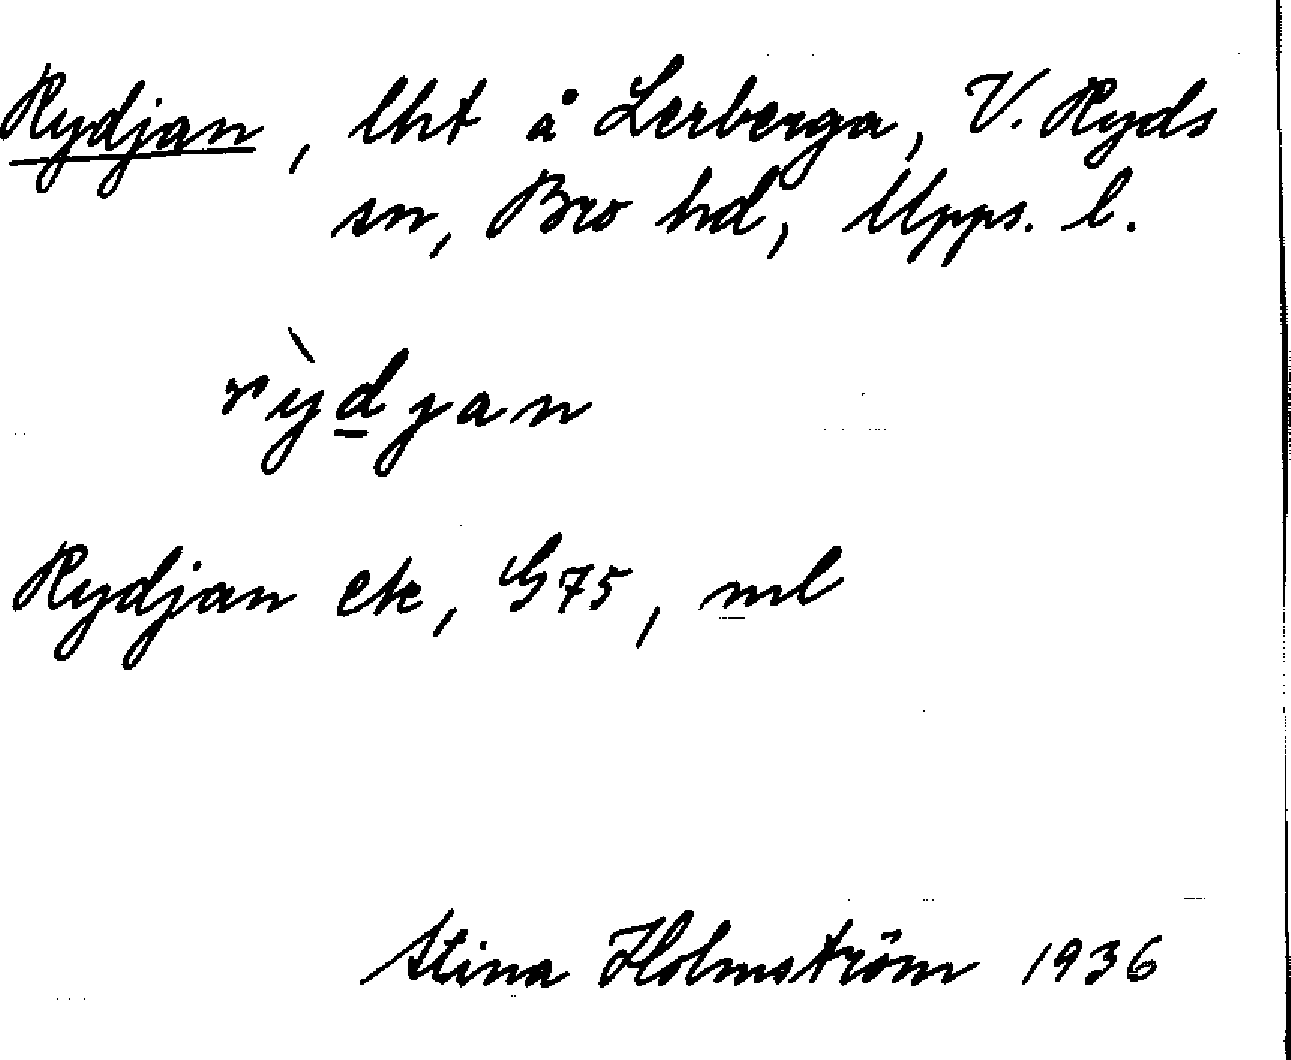 Rydjan, lht å Lerberga, V. Ryds
sn, Bro hd, Upps. l.
rỳdjan
Rydjan ek, G75, ml
Stina Holmström 1936